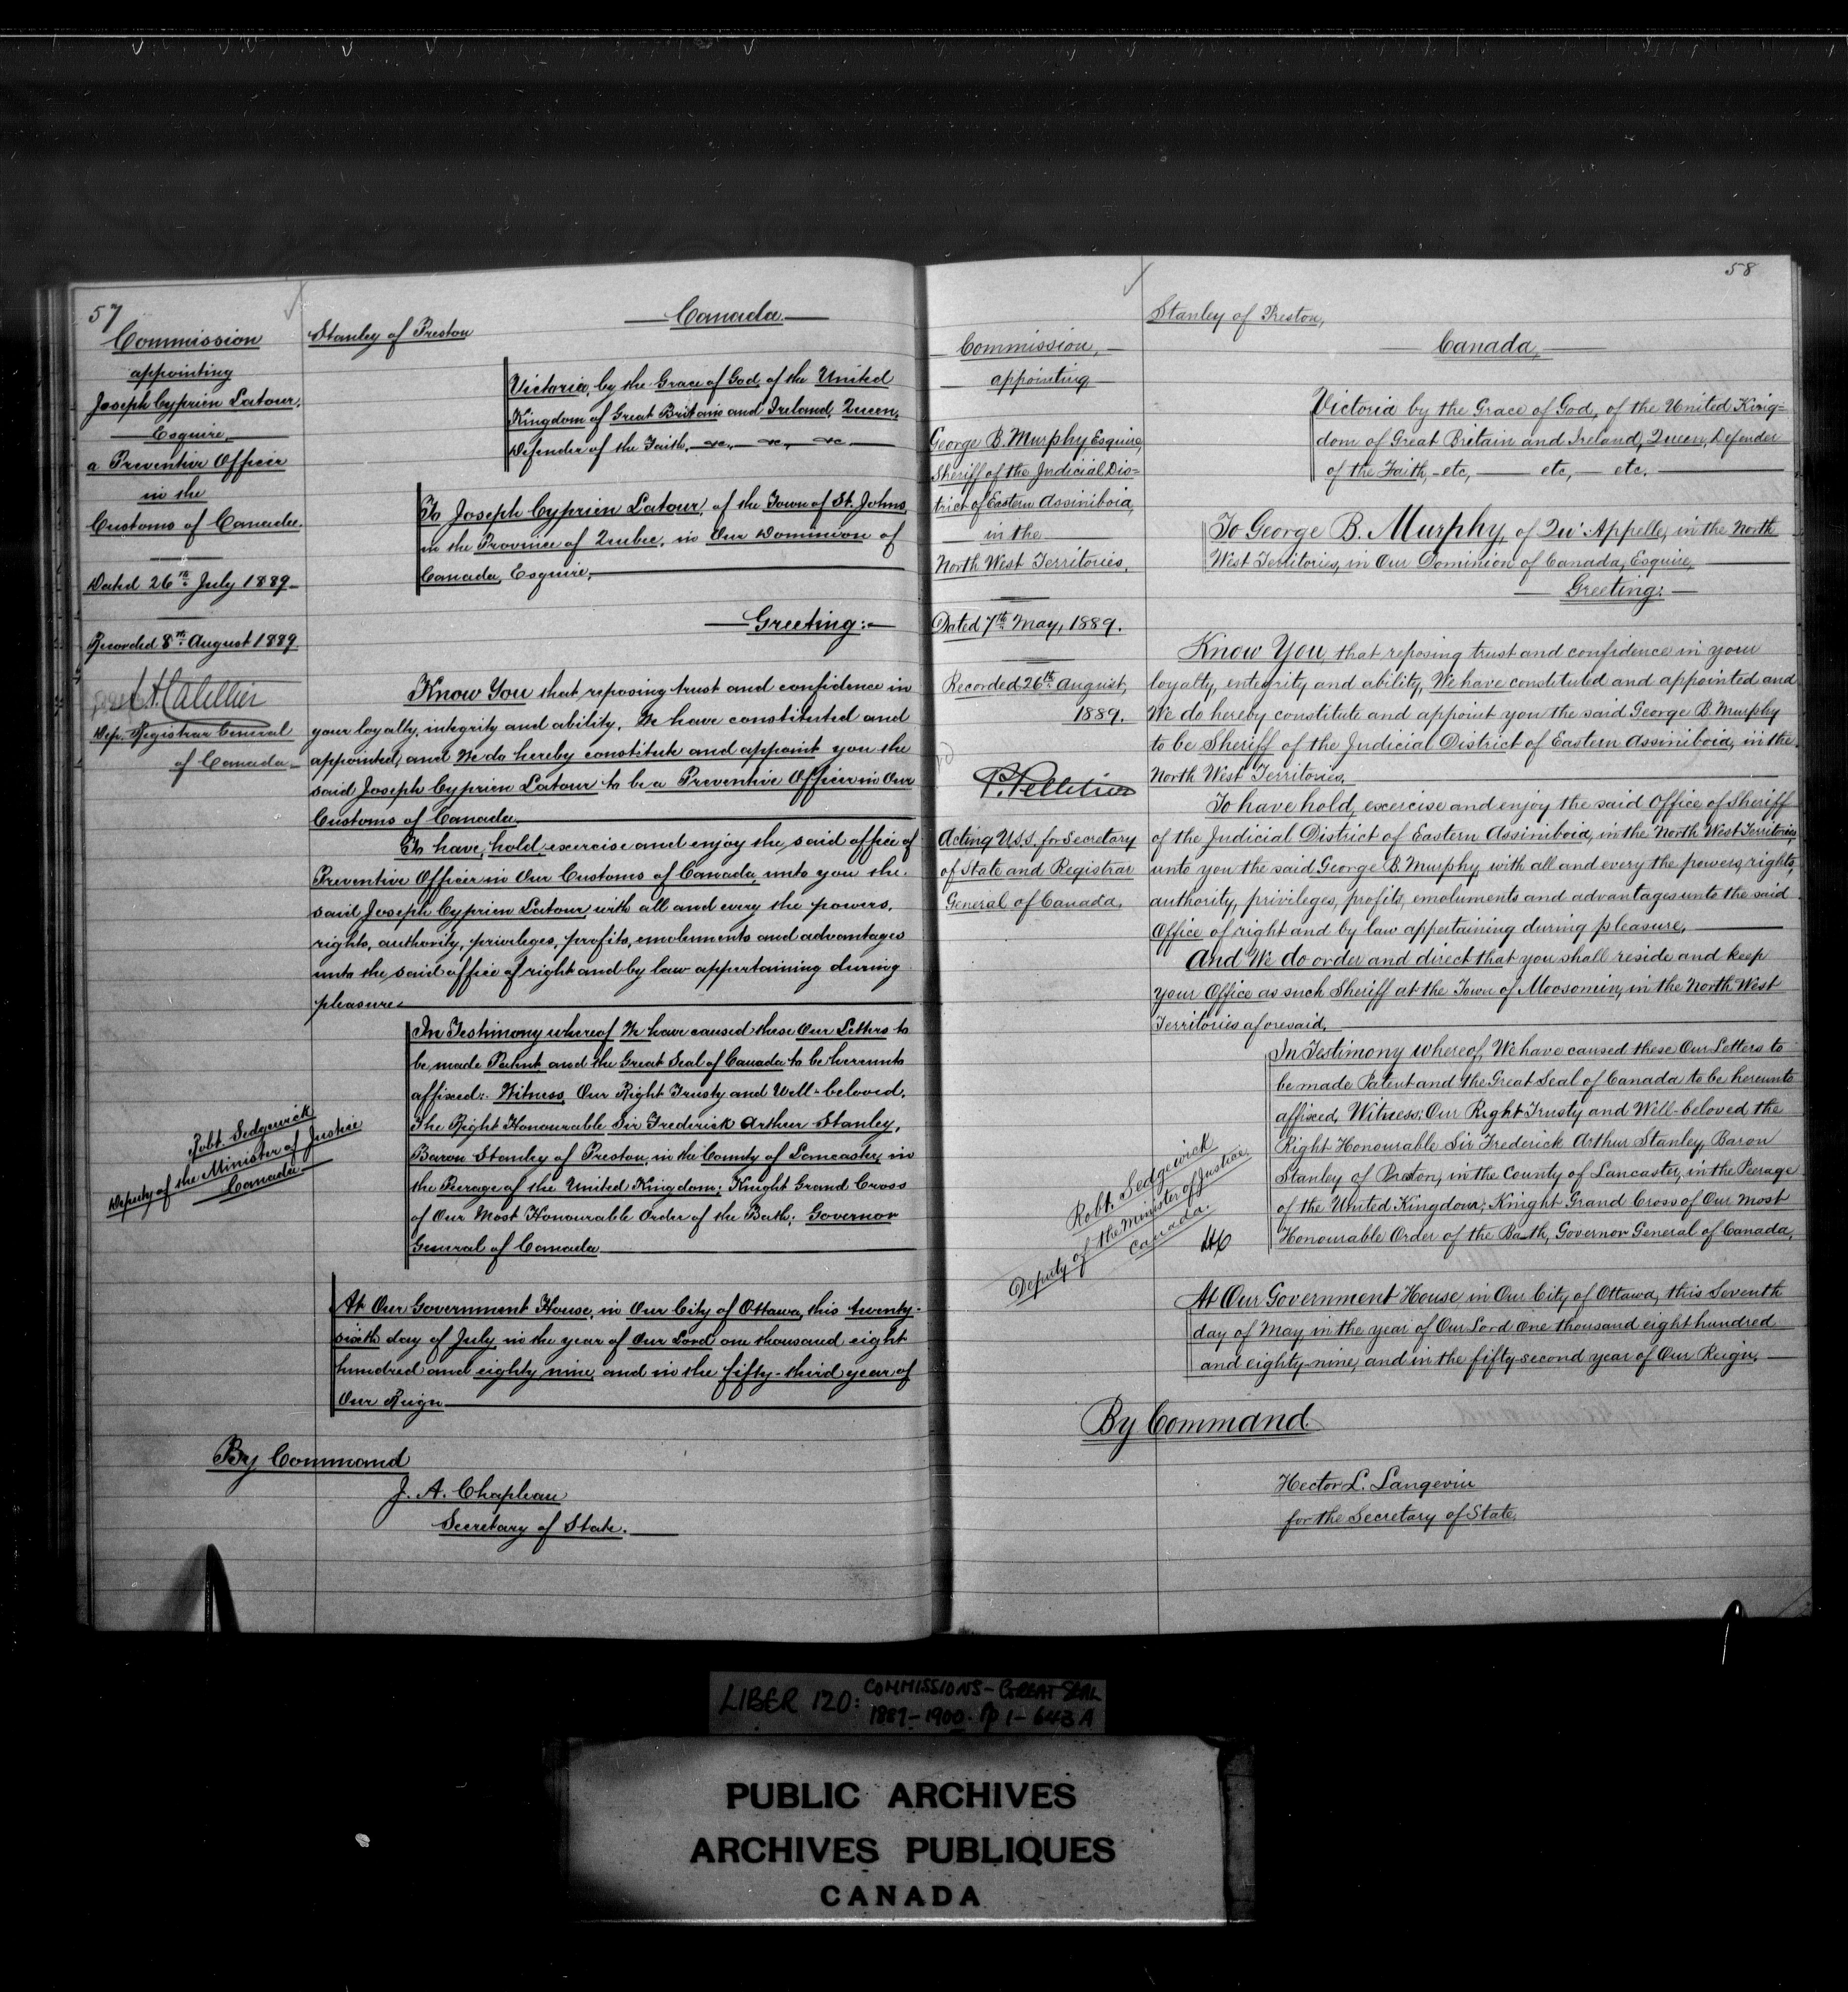 57
Commission
appointing
Joseph Cyprien Latour,
Esquire,
a Preventive Officer
in the
Customs of Canada.
Dated 26th July 1889
Recorded 8th August 1889
Dep. Registrar General
of Canada
Robt. Sedgewick
Deputy of the Minister of Justice
Canada
Stanley of Preston
Canada
Victoria, by the Grace of God, of the United
Kingdom of Great Britain and Ireland, Queen,
Defender of the Faith, &c., &c., &c.
To Joseph Cyprien Latour, of the Town of St. Johns,
in the Province of Quebec, in Our Dominion of
Canada, Esquire,
Greeting:
Know You that reposing trust and confidence in
your loyalty, integrity and ability, We have constituted and
appointed, and We do hereby constitute and appoint you the
said Joseph Cyprien Latour to be a Preventive Officer in Our
Customs of Canada
To have, hold, exercise and enjoy the said office of
Preventive Officer in Our Customs of Canada, unto you the
said Joseph Cyprien Latour with all and every the powers,
rights, authority, privileges, profits, emoluments and advantages
unto the said office of right and by law appertaining during
pleasure
In Testimony whereof We have caused these Our Letters to
be made Patent and the Great Seal of Canada to be hereunto
affixed: Witness, Our Right Trusty and Well-beloved,
The Right Honourable Sir Frederick Arthur Stanley,
Baron Stanley of Preston, in the County of Lancaster, in
the Peerage of the United Kingdom; Knight Grand Cross
of Our Most Honourable Order of the Bath; Governor
General of Canada
At Our Government House, in Our City of Ottawa, this twenty-
sixth day of July, in the year of Our Lord one thousand eight
hundred and eighty nine, and in the fifty-third year of
Our Reign
By Command
J. A. Chapleau
Secretary of State.
58
Commission,
appointing
George B. Murphy Esquire,
Sheriff of the Judicial Dis=
trict of Eastern Assiniboia,
in the
North West Territories.
Dated 7th May, 1889.
Recorded 26th August,
1889.
P. Pelletier
Acting U.S.S. for Secretary
of State and Registrar
General of Canada.
Robt. Sedgewick
Deputy of the Minister of Justice,
Canada.
Stanley of Preston,
Canada,
Victoria by the Grace of God, of the United King=
dom of Great Britain and Ireland, Queen, Defender
of the Faith, etc, etc, etc.
To George B. Murphy, of Qu'Appelle, in the North
West Territories, in Our Dominion of Canada, Esquire,
Greeting:
Know You, that reposing trust and confidence in your
loyalty, entegrity and ability, We have constituted and appointed and
We do hereby constitute and appoint you the said George B. Murphy
to be Sheriff of the Judicial District of Eastern Assiniboia, in the
North West Territories.
To have hold, excercise and enjoy the said Office of Sheriff
of the Judicial District of Eastern Assiniboia, in the North West Territories,
unto you the said George B. Murphy, with all and every the powers, rights,
authority, privileges, profits, emoluments and advantages unto the said
Office of right and by law appertaining during pleasure,
And We do order and direct that you shall reside and keep
your Office as such Sheriff at the Town of Moosomin, in the North West
Territories aforesaid,
In Testimony whereof, We have caused these Our Letters to
be made Patent and the Great Seal of Canada to be hereunto
affixed, Witness: Our Right Trusty and Well-beloved the
Right Honourable Sir Frederick Arthur Stanley, Baron
Stanley of Preston, in the County of Lancaster, in the Peerage
of the United Kingdom; Knight Grand Cross of Our Most
Honourable Order of the Bath, Governor General of Canada,
At Our Government House in Our City of Ottawa, this Seventh
day of May, in the year of Our Lord One thousand eight hundred
and eighty-nine, and in the fifty-second year of Our Reign,
By Command
Hector L. Langevin
for the Secretary of State,
LIBER 120: COMMISSIONS - GREAT SEAL
1889-1900. pp 1-643A
PUBLIC ARCHIVES
ARCHIVES PUBLIQUES
CANADA